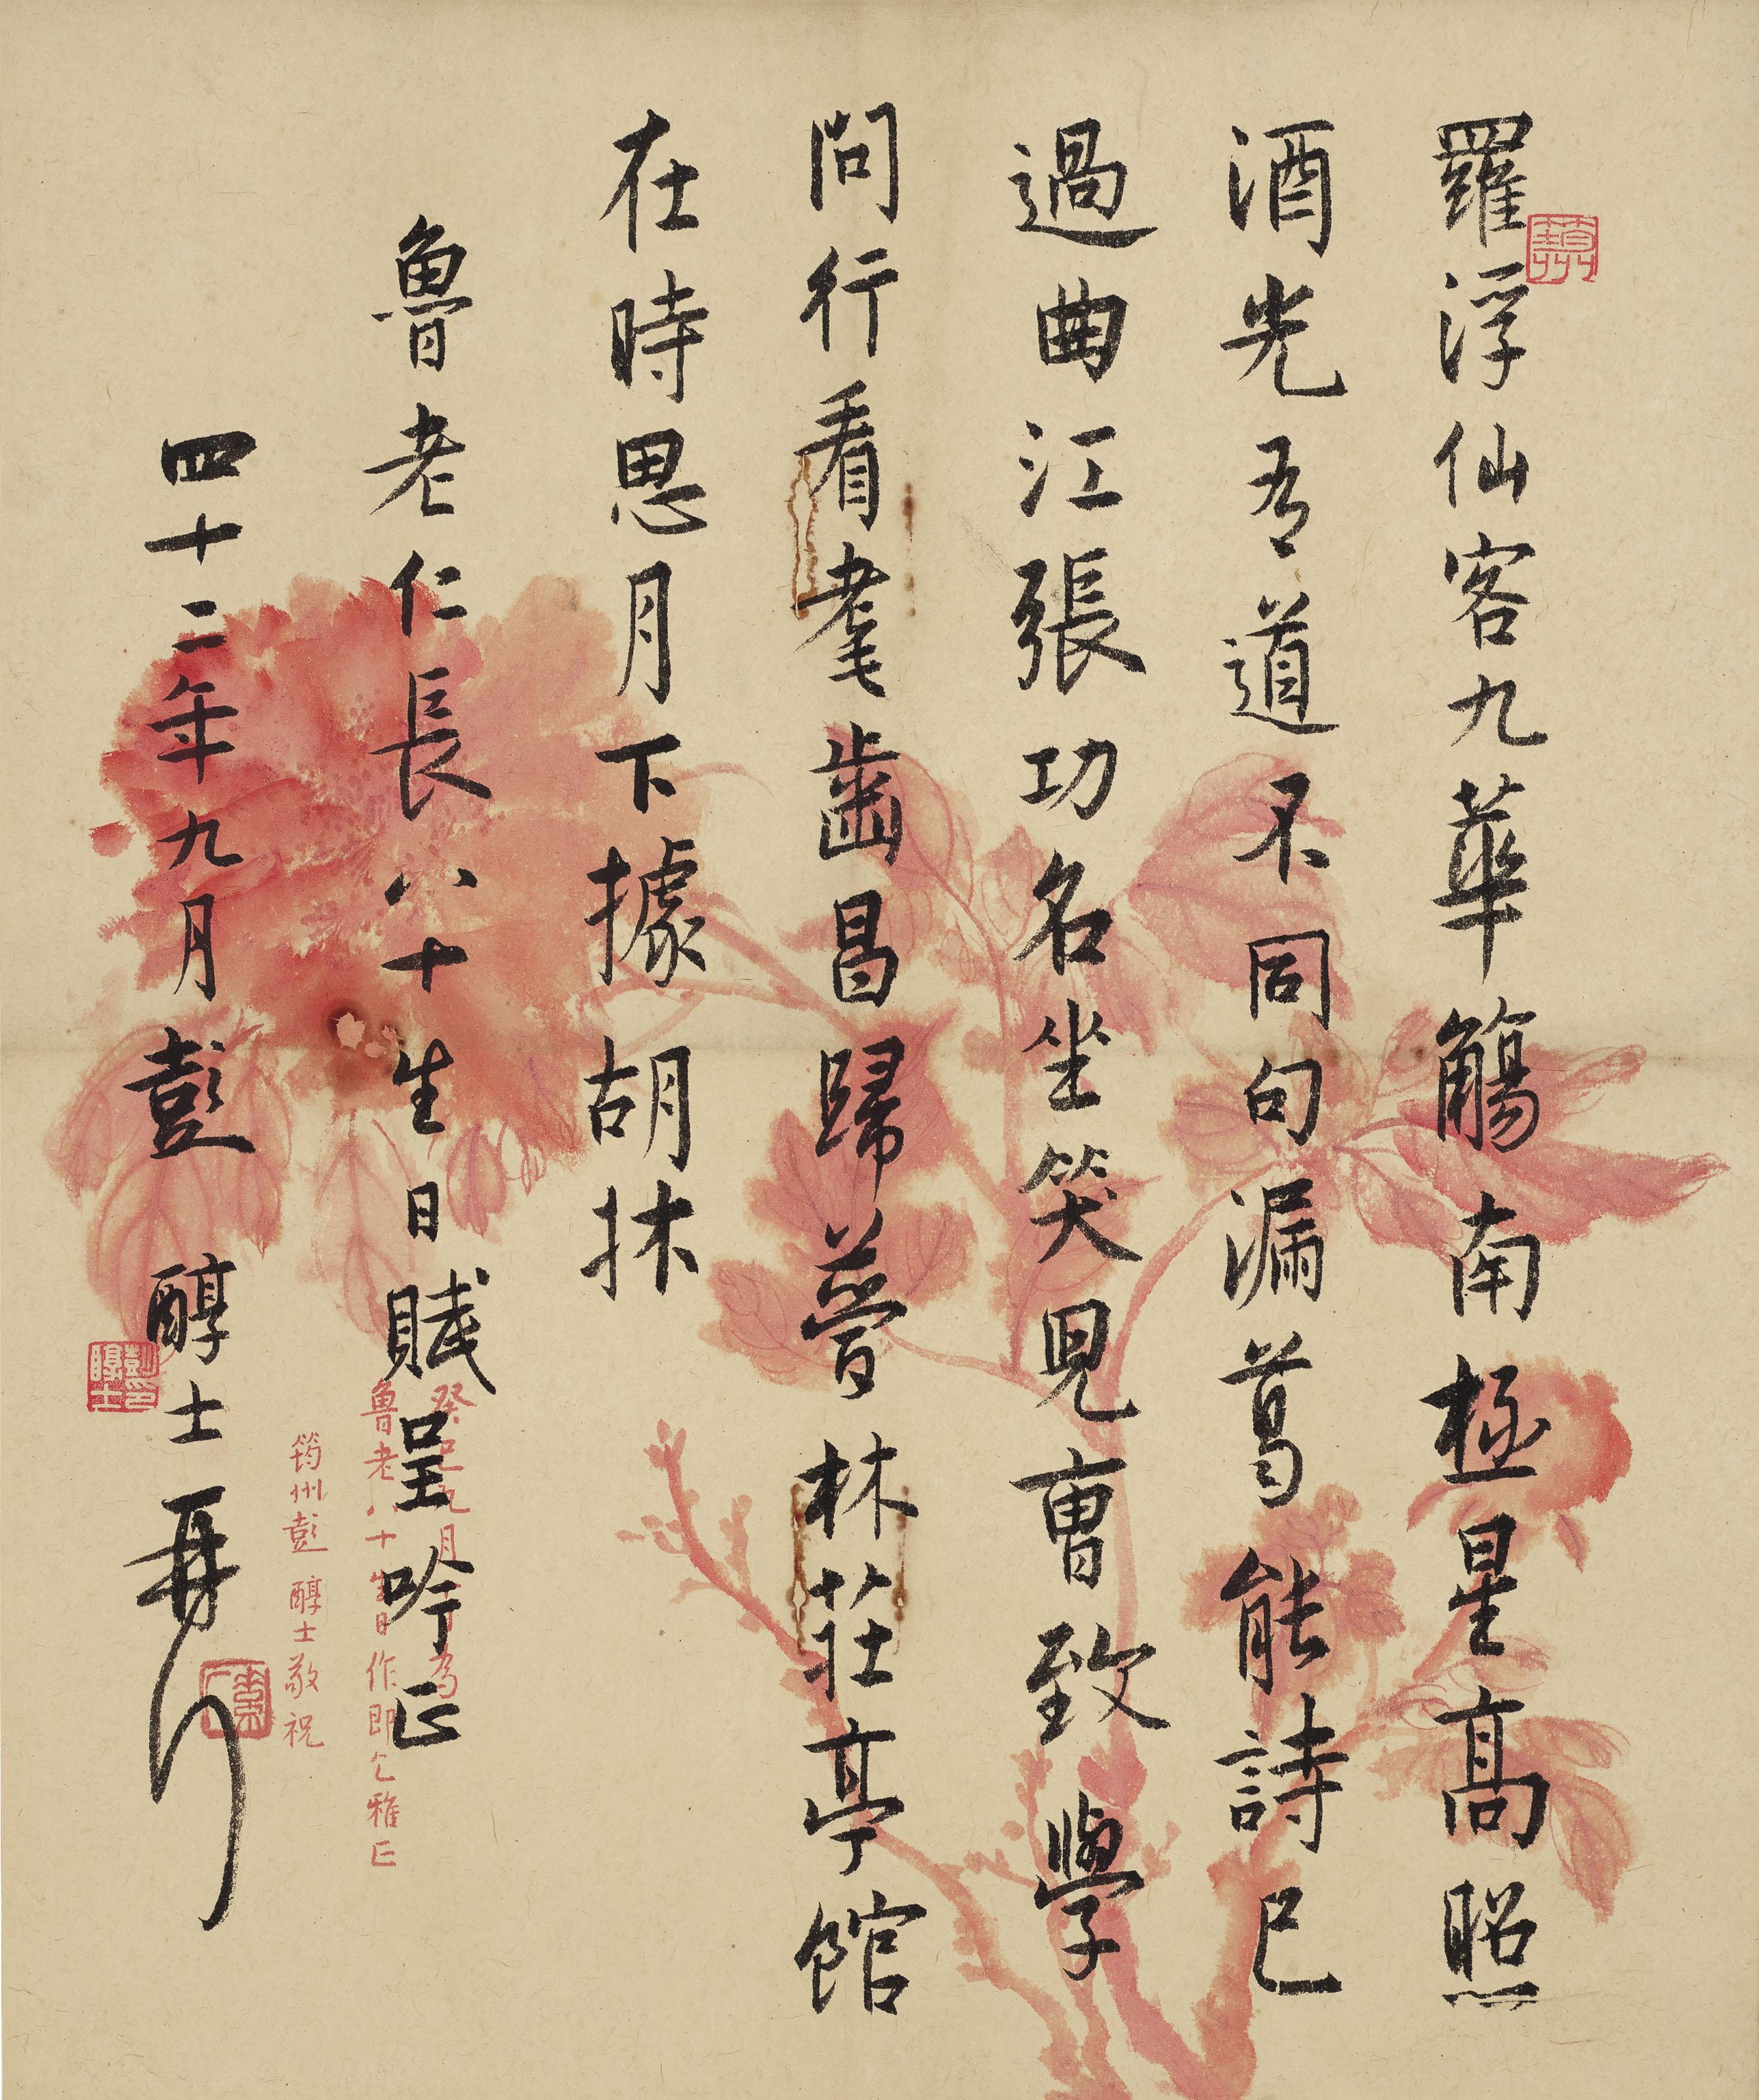 羅浮仙客九華觴南極星高照
酒光吾道不同句漏葛能詩已
過曲江張功名坐笑兒曹致學
問行看耄齒昌歸夢林莊亭館
在時思月下據胡牀
魯老仁長八十生日賦呈吟正
四十二年九月彭醇士再拜
癸巳九月為
魯老八十生日作即乞雅正
筠州彭醇士敬祝
彭醇士印